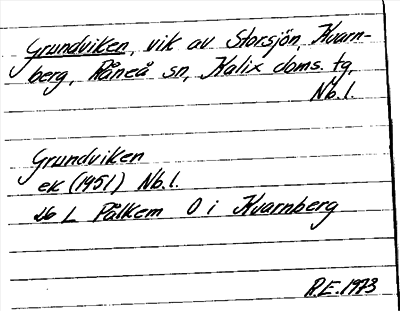 Grundviken, vik av Storsjön, Kvarn-
berg, Råneå sn, Kalix doms. tg,
Nb.l.
Grundviken
ek (1951) Nb.l.
L Pålkem O i Kvarnberg
R.E. 1973